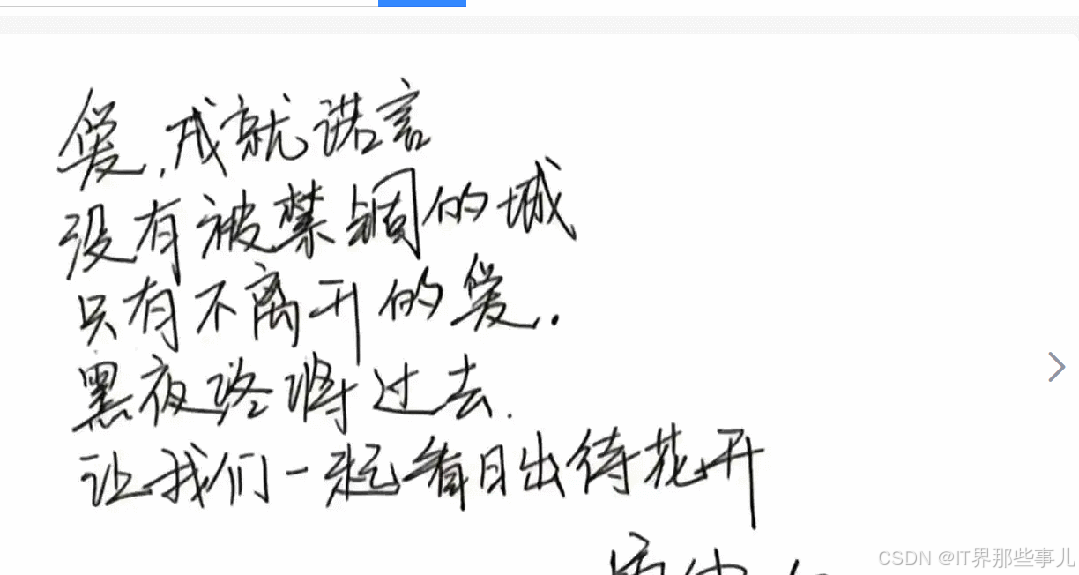 爱,成就诺言
没有被禁锢的城
只有不离开的爱.
黑夜终将过去.
让我们一起看日出待花开
CSDN @IT界那些事儿